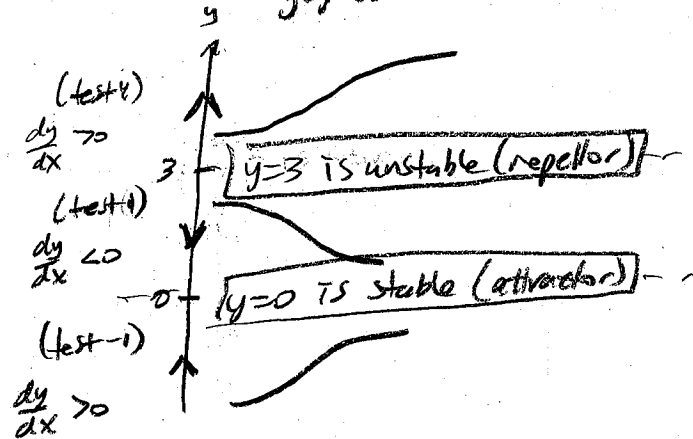 y
(test 4)
dy/dx >0
3
y=3 is unstable (repellor)
(test 1)
dy/dx <0
0
y=0 is stable (attractor)
(test -1)
dy/dx >0